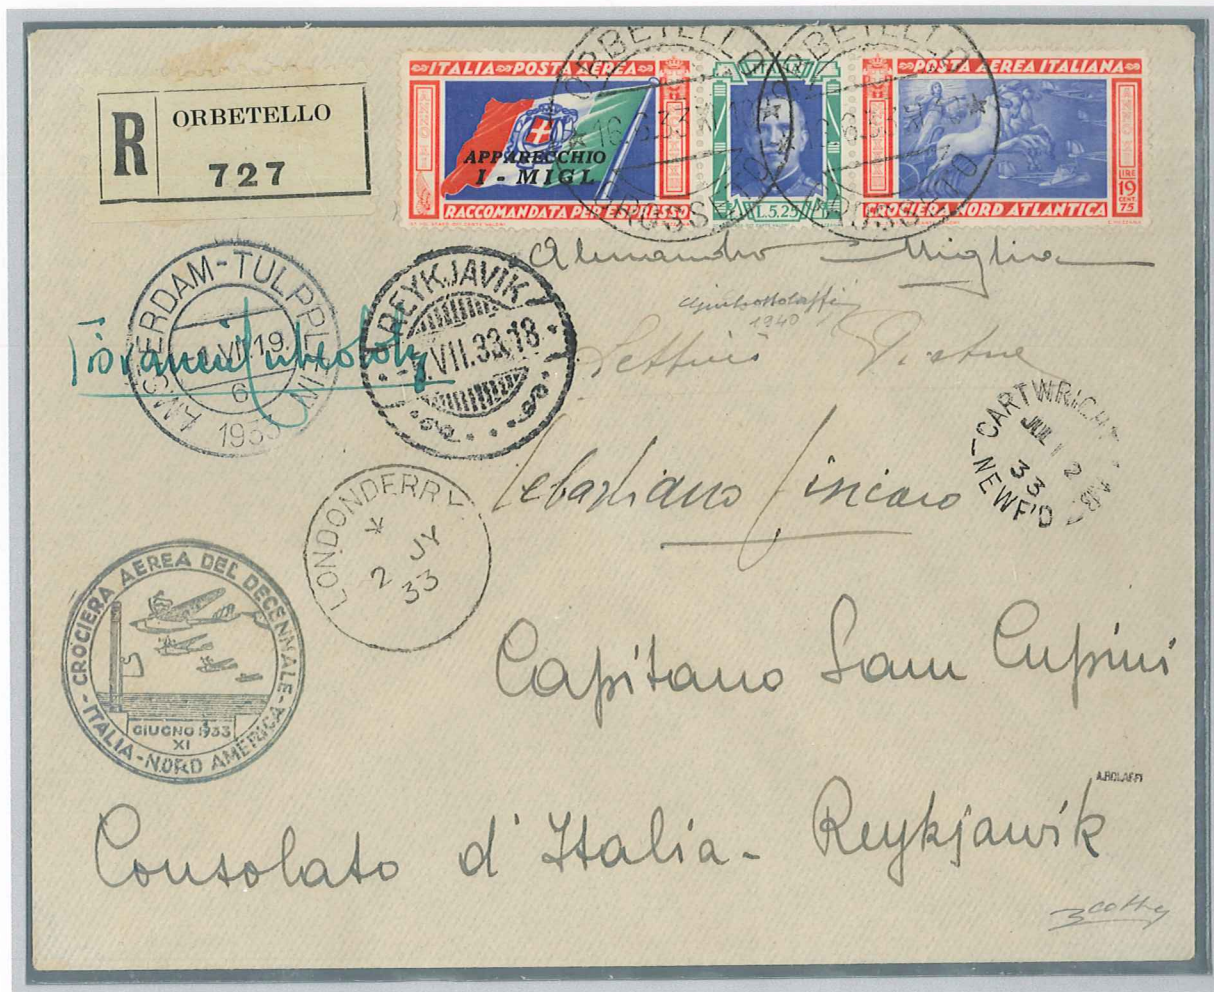 R ORBETELLO
727
ITALIA POSTA AEREA
APPARECCHIO
I - MIGL
RACCOMANDATA PER ESPRESSO
L. 5,25
POSTA AEREA ITALIANA
LIRE
19
CENT.
75
CROCIERA NORD ATLANTICA
ORBETELLO
GROSSETO
ORBETELLO
GROSSETO
Alessandro Miglia
1940
AMSTERDAM-TULPPLEIN
VII 19.
6
1933
REYKJAVIK
VII.33.18
Sebastiano
CARTWRIGHT
JUL 12
33
NEWF'D
LONDONDERRY
2 JY
33
CROCIERA AEREA DEL DECENNALE
ITALIA - NORD AMERICA
GIUGNO 1933
XI
Capitano Sam Cupini
A.BOLAFFI
Consolato d'Italia - Reykjawík